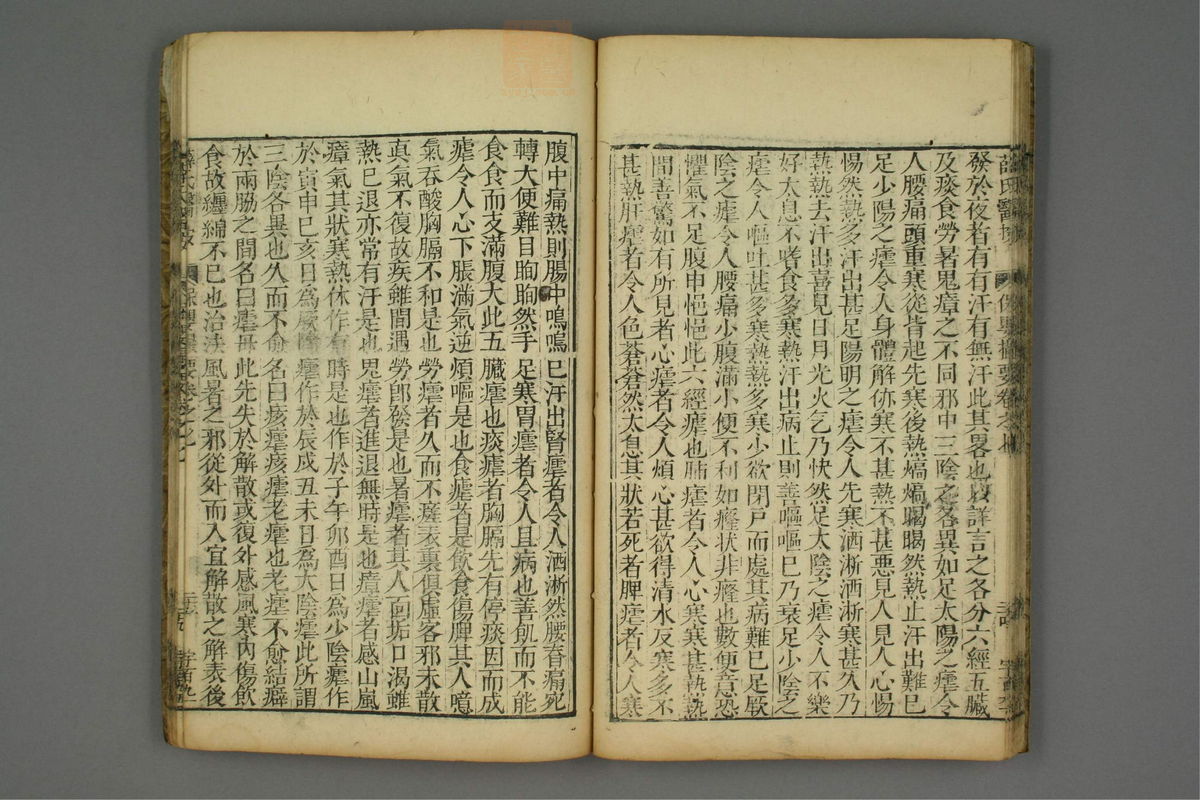 薛氏醫按
保嬰撮要卷之七
發於夜者有有汗有無汗此其畧也詳言之各分六經五臟
及痰食勞暑鬼瘴之不同邪中三陰之各異如足太陽之瘧令
人腰痛頭重寒從背起先寒後熱熇熇暍暍然熱止汗出難已
足少陽之瘧令人身體解㑊寒不甚熱不甚惡見人見人心惕
惕然熱多汗出甚足陽明之瘧令人先寒洒淅洒淅寒甚久乃
熱熱去汗出喜見日月光火氣乃快然足太陰之瘧令人不樂
好太息不嗜食多寒熱汗出病止則善嘔嘔已乃衰足少陰之
瘧令人嘔吐甚多寒熱熱多寒少欲閉戶而處其病難已足厥
陰之瘧令人腰痛少腹滿小便不利如癃状非癃也數便意恐
懼氣不足腹中悒悒此六經瘧也肺瘧者令人心寒寒甚熱熱
間善驚如有所見者心瘧者令人煩心甚欲得清水反寒多不
甚熱肝瘧者令人色蒼蒼然太息其狀若死者脾瘧者令人寒
腹中痛熱則腸中鳴鳴已汗出腎瘧者令人洒淅然腰脊痛宛
轉大便難目眴眴然手足寒胃瘧者令人且病也善飢而不能
食食而支滿腹大此五臟瘧也痰瘧者胸膈先有停痰因而成
瘧令人心下脹滿氣逆煩嘔是也食瘧者是飲食傷脾其人噫
氣吞酸胸膈不和是也勞瘧者久而不瘥表裏俱虛客邪未散
真氣不復故疾雖間遇勞卽發是也暑瘧者其人面垢口渴雖
熱已退亦常有汗是也鬼瘧者進退無時是也瘴瘧者感山嵐
瘴氣其狀寒熱休作有時是也作於子午卯酉日爲少陰瘧作
於寅申巳亥日爲厥陰瘧作於辰戌丑未日爲太陰瘧此所謂
三陰各異也久而不愈名曰痎瘧痎瘧老瘧也老瘧不愈結癖
於兩脇之間名曰瘧母此先失於解散或復外感風寒內傷飲
食故纏綿不已也治法風暑之邪從外而入宜解散之解表後